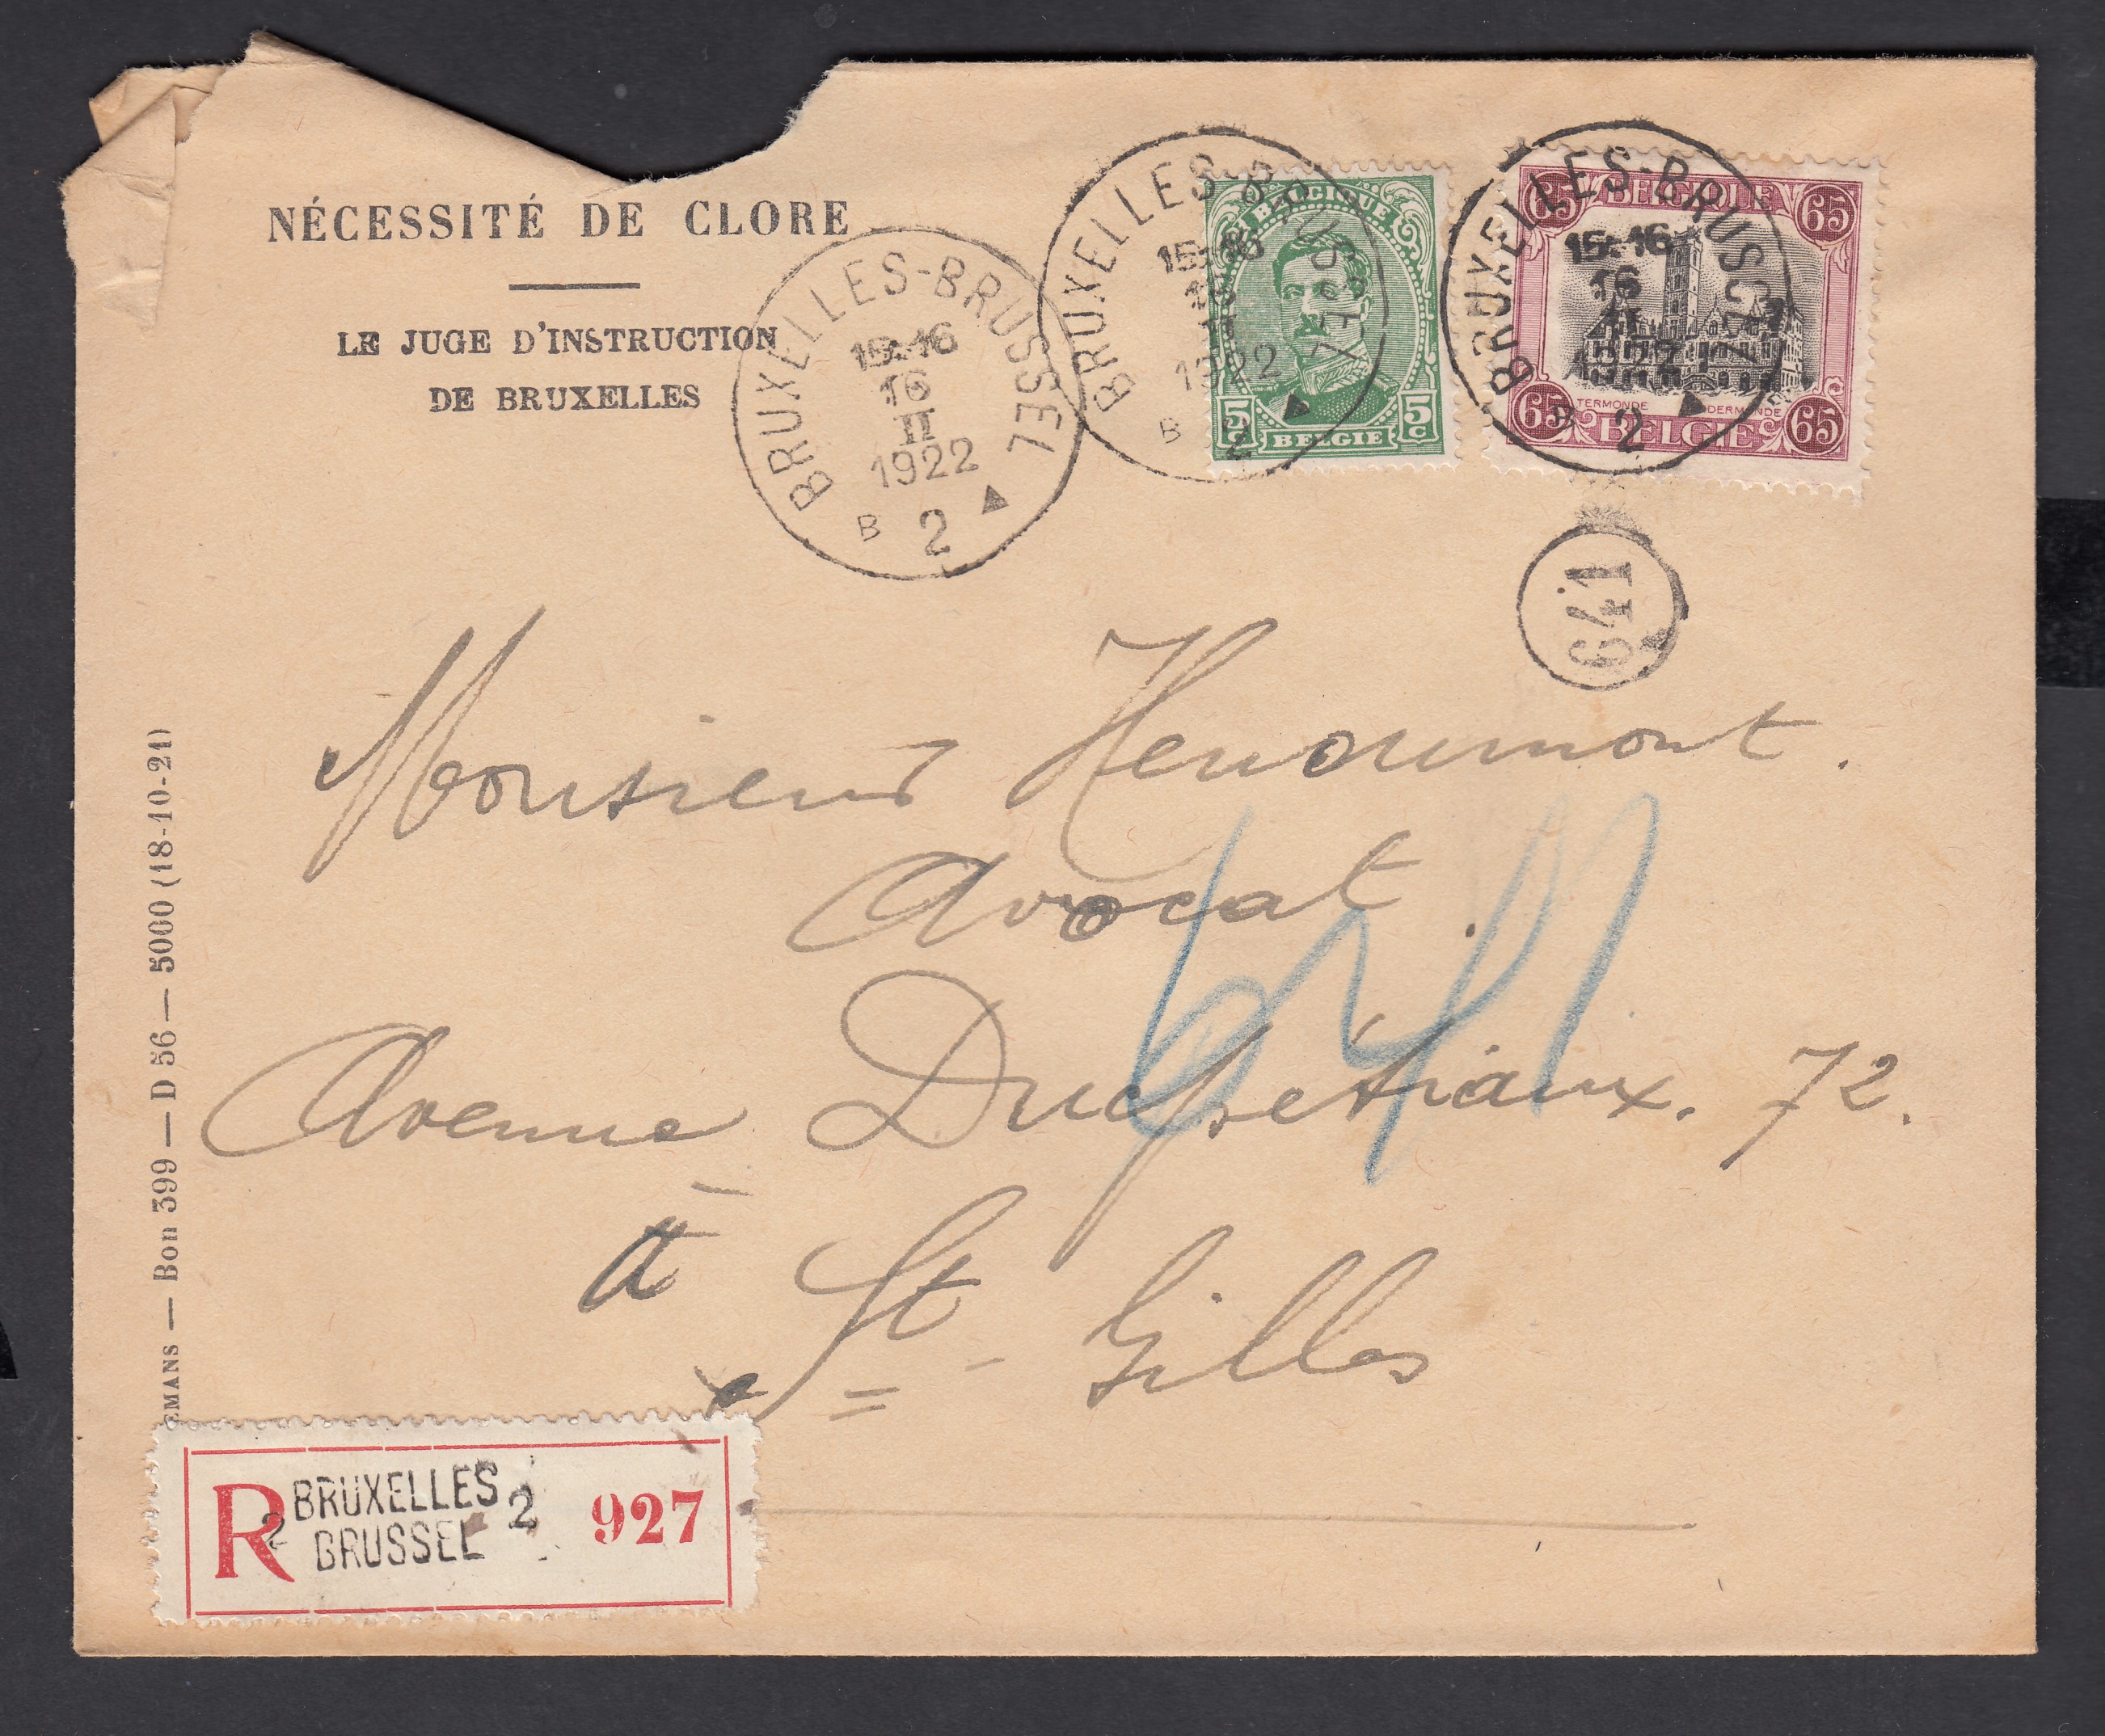 NÉCESSITÉ DE CLORE
LE JUGE D'INSTRUCTION
DE BRUXELLES
BRUXELLES-BRUSSEL
15-16
16
II
1922
B 2
BRUXELLES-BRUSSEL
15-16
16
II
1922
B 2
BELGIQUE
5 5c
BELGIË
BRUXELLES-BRUSSEL
15-16
16
II
1922
B 2
65 BELGIQUE 65
TERMONDE DENDERMONDE
65 BELGIE 65
641
Monsieur Henoumont.
Avocat.
641
Avenue Ducpétiaux. 72.
à
St Gilles
EMANS — Bon 399 — D 56 — 5000 (18-10-21)
R 2 BRUXELLES 2 927
BRUSSEL